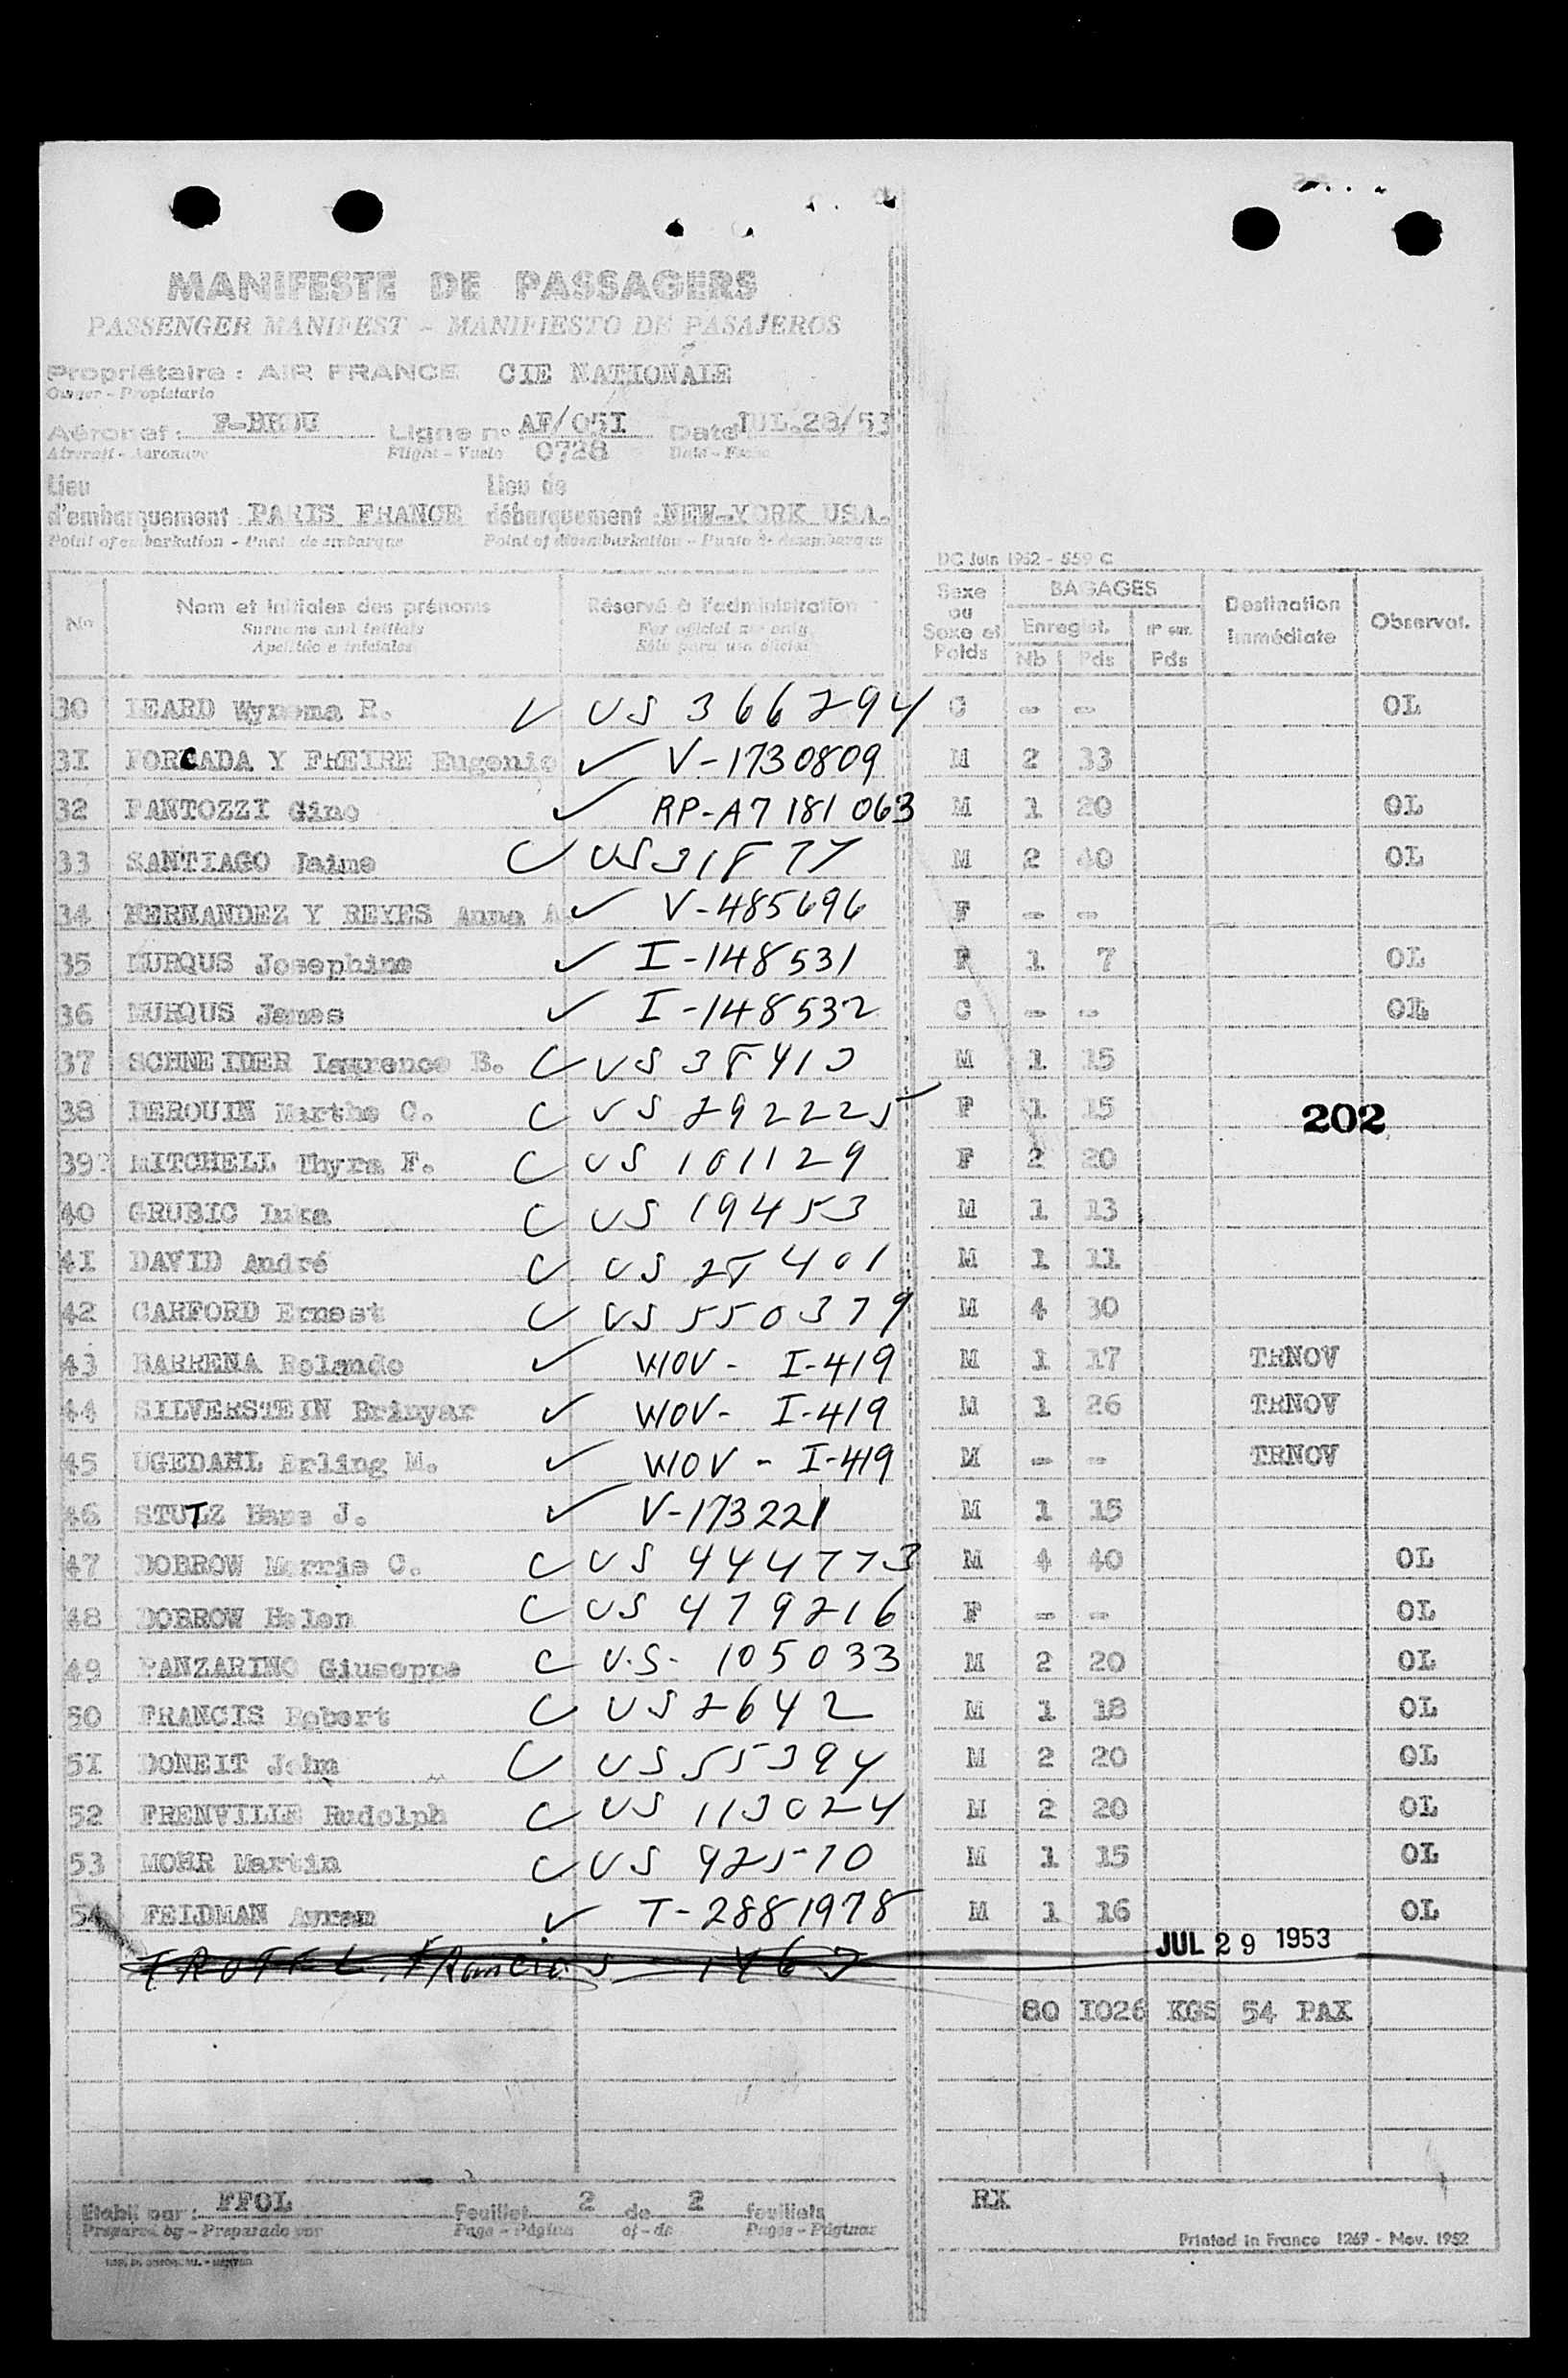 MANIFESTE DE PASSAGERS
PASSENGER MANIFEST - MANIFIESTO DE PASAJEROS
Propriétaire : AIR FRANCE CIE NATIONALE
Owner - Propietario
Aéronef : Ligne no AF/05I Date JUL.28/53
Aircraft - Aeronave Flight - Vuelo 0728 Date - Fecha
Lieu d'embarquement : PARIS FRANCE Lieu de débarquement : NEW-YORK USA.
Point of embarkation - Punto de embarque Point of disembarkation - Punto de desembarque
DC Juin 1952 - 559 C
No Nom et initiales des prénoms Réservé à l'administration Sexe ou Sexe et Poids BAGAGES Enregist. Nb Pds Nº sur. Pds Destination immédiate Observat.
Surname and initials For official use only
Apellido e iniciales Sólo para uso oficial
30 IEARD R. ✓ US 366294 C - - OL
31 FORCADA Y FREIRE Eugenio ✓ V-1730809 M 2 33
32 FANTOZZI Gino ✓ RP-A7 181 063 M 1 20 OL
33 SANTIAGO Jaime ✓ US M 2 40 OL
34 HERNANDEZ Y REYES Anna A ✓ V-485696 F - -
35 MURQUS Josephine ✓ I-148531 F 1 7 OL
36 MURQUS James ✓ I-148532 C - - OL
37 SCHNEIDER Lawrence B. ✓ US 38413 M 1 15
38 DEROUIN Marthe C. ✓ US 292225 F 1 15
202
39 MITCHELL Thyra F. ✓ US 101129 F 2 20
40 GRUBIC Luka ✓ US 19453 M 1 13
4I DAVID André ✓ US 28401 M 1 11
42 GARFORD Ernest ✓ US 550379 M 4 30
43 BARRENA Rolando ✓ WOV - I-419 M 1 17 TRNOV
44 SILVERSTEIN Brinyar ✓ WOV- I-419 M 1 26 TRNOV
45 UGEDAHL Erling M. ✓ WOV - I-419 M - - TRNOV
46 STUTZ Hans J. ✓ V-173221 M 1 15
47 DOBROW Morris C. ✓ US 444773 M 4 40 OL
48 DOBROW Helen ✓ US 479216 F - - OL
49 PANZARINO Giuseppe ✓ U.S. 105033 M 2 20 OL
50 FRANCIS Robert ✓ US 2642 M 1 18 OL
5I DONEIT John ✓ US 55394 M 2 20 OL
52 FRENVILLE Rudolph ✓ US 113024 M 2 20 OL
53 MOHR Martin ✓ US 92570 M 1 15 OL
54 FELDMAN Avram ✓ T-2881978 M 1 16 OL
JUL 29 1953
80 I026 KGS 54 PAX
Etabli par : FFOL Feuillet 2 de 2 feuillets RX
Prepared by - Preparado por Page - Página of - de Pages - Páginas
Printed in France 1269 - Nov. 1952